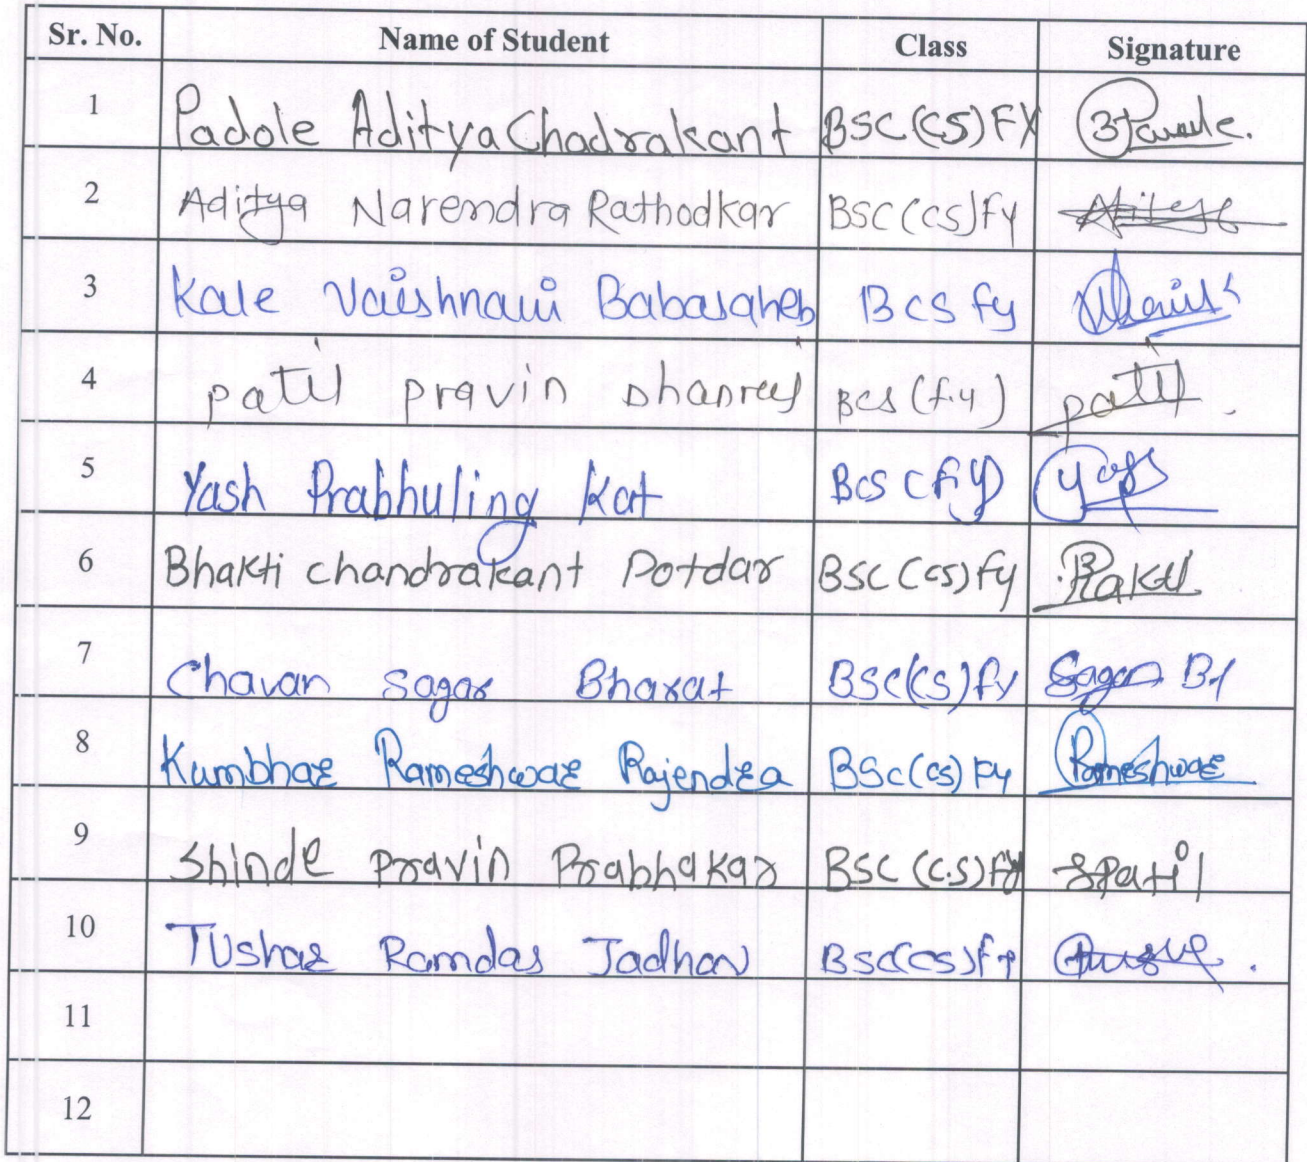 Sr. No. Name of Student Class Signature
1 Padole Aditya Chadrakant BSC(CS)FY
2 Aditya Narendra Rathodkar BSC(CS)fy
3 Kale Vaishnavi Babasaheb BCS fy
4 patil pravin Dhanraj BCS (f.y) patil.
5 Yash Prabhuling Kat BCS (f.y) Yash
6 Bhakti chandrakant Potdar BSC (CS) fy Bhakti
7 Chavan Sagar Bharat BSC(CS)fy Sagar
8 Kumbhar Rameshwar Rajendra BSc(CS) Fy Rameshwar
9 Shinde Pravin Prabhakar BSC (C.S) FY SPatil
10 Tushar Ramdas Jadhav BSC(CS)fy
11
12